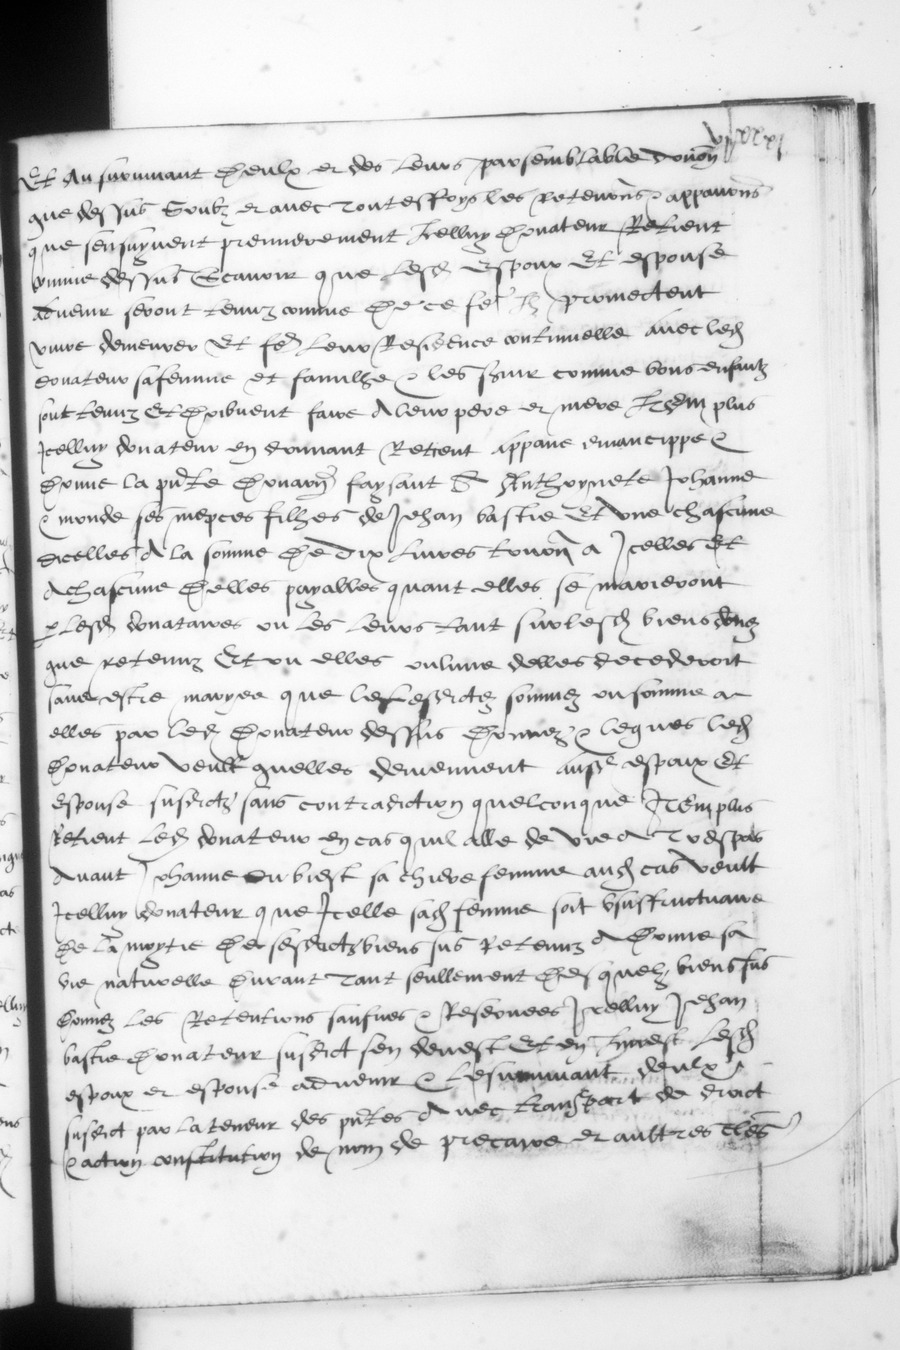 Et au survivant d'eulx et des leurs par semblable donõn
que dessus soubz et avec toutesfoys les retentõns & appanõns
que sensuyvent premierement Icelluy donateur Retient
comme dessus scavoir que lesd espoux Et espouse
advenir seront tenuz comme de ce fe ilz promectent
vivre demeurer Et fe leur Residence continuelle avec led
donateur sa femme et familhe & les servir comme bons enfantz
sont tenuz Et doibvent faire a leur pere et mere Item plus
Icelluy donateur en donnant Retient appane emancippe &
donne la pnte donaõn faysant a Anthoynete Johanne
& monde ses niepces filhes de Jehan bastie Et une chascune
dicelles a la somme de dix livres tourn a Icelles Et
a chascune delles payables quant elles se marieront
p lesd donataires ou les leurs tant sur lesd biens donez
que retenuz Et ou elles ou lune delles decederoit
sans estre maryee que lesd sommes ou somme a
elles par led donateur dessus donnez & legues led
donateur veult quelles deviennent ausd espoux Et
espouse susdictz sans contradiction quelconque Item plus
Retient led donateur en cas quil alle de vie a trespas
avant Johanne du biest sa chiere femme aud cas veult
Icelluy donateur que Icelle sad femme soit usufructuaire
de la moytie de sesdictz biens sus Retenuz a donne sa
vie naturelle durant tant seullement desquelz biens sus
donnez les Retentions saufves & Reservees Icelluy Jehan
bastie donateur susdict sen devest Et en Invest lesd
espoux et espouse advenir & le survivant deulx
susdict par la teneur des pntes avec transport de droict
& action constitution de nom de precaire et aultres cles